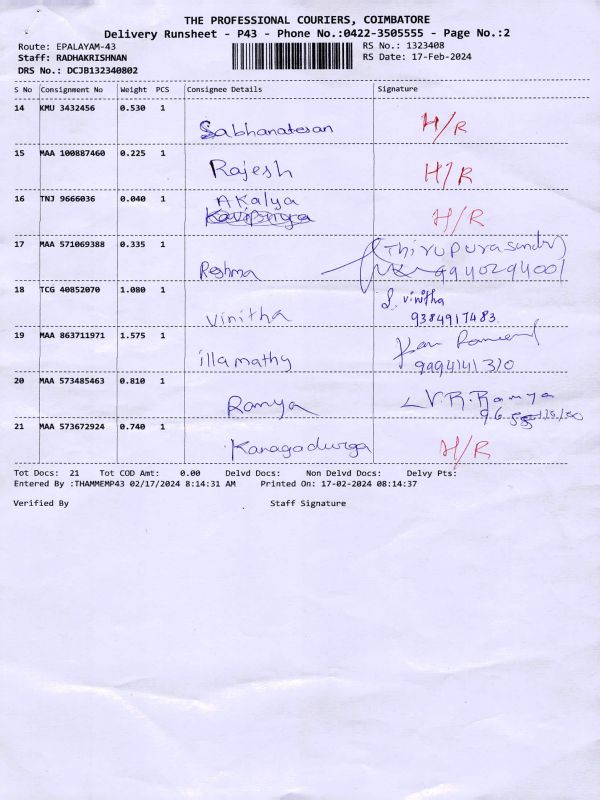 THE PROFESSIONAL COURIERS, COIMBATORE
Delivery Runsheet - P43 - Phone No.:0422-3505555 - Page No.:2
Route: EPALAYAM-43 RS No.: 1323408
Staff: RADHAKRISHNAN RS Date: 17-Feb-2024
DRS No.: DCJB132340802
S No Consignment No Weight PCS Consignee Details Signature
14 KMU 3432456 0.530 1
Sabhanatesan H/R
15 MAA 100887460 0.225 1
Rajesh H/R
16 TNJ 9666036 0.040 1
Akalya
H/R
17 MAA 571069388 0.335 1 (Thirupurasundari)
Reshma 9940294001
18 TCG 40852070 1.080 1 S. vinitha
Vinitha 9384917483
19 MAA 863711971 1.575 1
illamathy 9994141320
20 MAA 573485463 0.810 1 V.R.Ramya
Ramya
21 MAA 573672924 0.740 1
Kanagadurga H/R
Tot Docs: 21 Tot COD Amt: 0.00 Delvd Docs: Non Delvd Docs: Delvy Pts:
Entered By :THAMMEMP43 02/17/2024 8:14:31 AM Printed On: 17-02-2024 08:14:37
Verified By Staff Signature